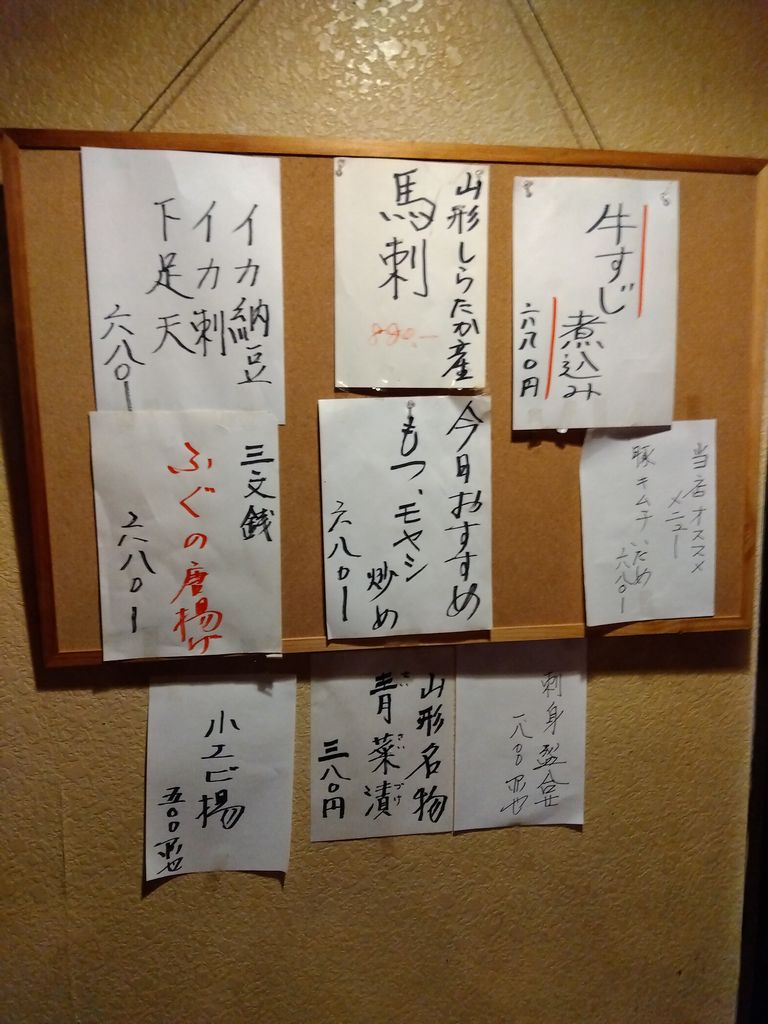 牛すじ
煮込み
六八〇円
山形しらたか産
馬刺
880.-
イカ納豆
イカ刺
下足天
六八〇ー
当店オススメ
メニュー
豚キムチいため
六八〇ー
今日おすすめ
もつ、モヤシ
炒め
六八〇ー
三文銭
ふぐの唐揚げ
六八〇ー
刺身盛合せ
山形名物
青菜漬
せいさいづけ
三八〇円
小エビ揚
五〇〇